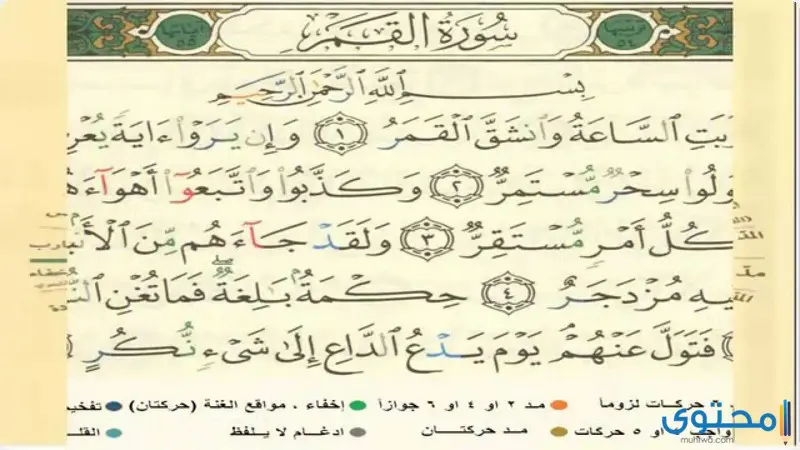 سُورَةُ القَمَرِ
ترتيبها ٥٤
آياتها ٥٥
بِسْمِ اللَّهِ الرَّحْمَٰنِ الرَّحِيمِ
ـرَبَتِ السَّاعَةُ وَانشَقَّ الْقَمَرُ ۝١ وَإِن يَرَوْا ءَايَةً يُعْرِ
ـولُوا سِحْرٌ مُّسْتَمِرٌّ ۝٢ وَكَذَّبُوا وَاتَّبَعُوٓا أَهْوَآءَهُـ
كُلُّ أَمْرٍ مُّسْتَقِرٌّ ۝٣ وَلَقَدْ جَآءَهُم مِّنَ الْأَنـ
ـيهِ مُزْدَجَرٌ ۝٤ حِكْمَةٌۢ بَٰلِغَةٌ ۖ فَمَا تُغْنِ النُّـ
فَتَوَلَّ عَنْهُمْ ۘ يَوْمَ يَدْعُ الدَّاعِ إِلَىٰ شَىْءٍ نُّكُرٍ
٦ حركات لزوماً ● مد ٢ او ٤ او ٦ جوازاً ● إخفاء ، مواقع الغنة (حركتان) ● تفخيم
واجب ٤ او ٥ حركات ● مد حركتان ● ادغام لا يلفظ ● القلـ
محتوى
muhtwa.com